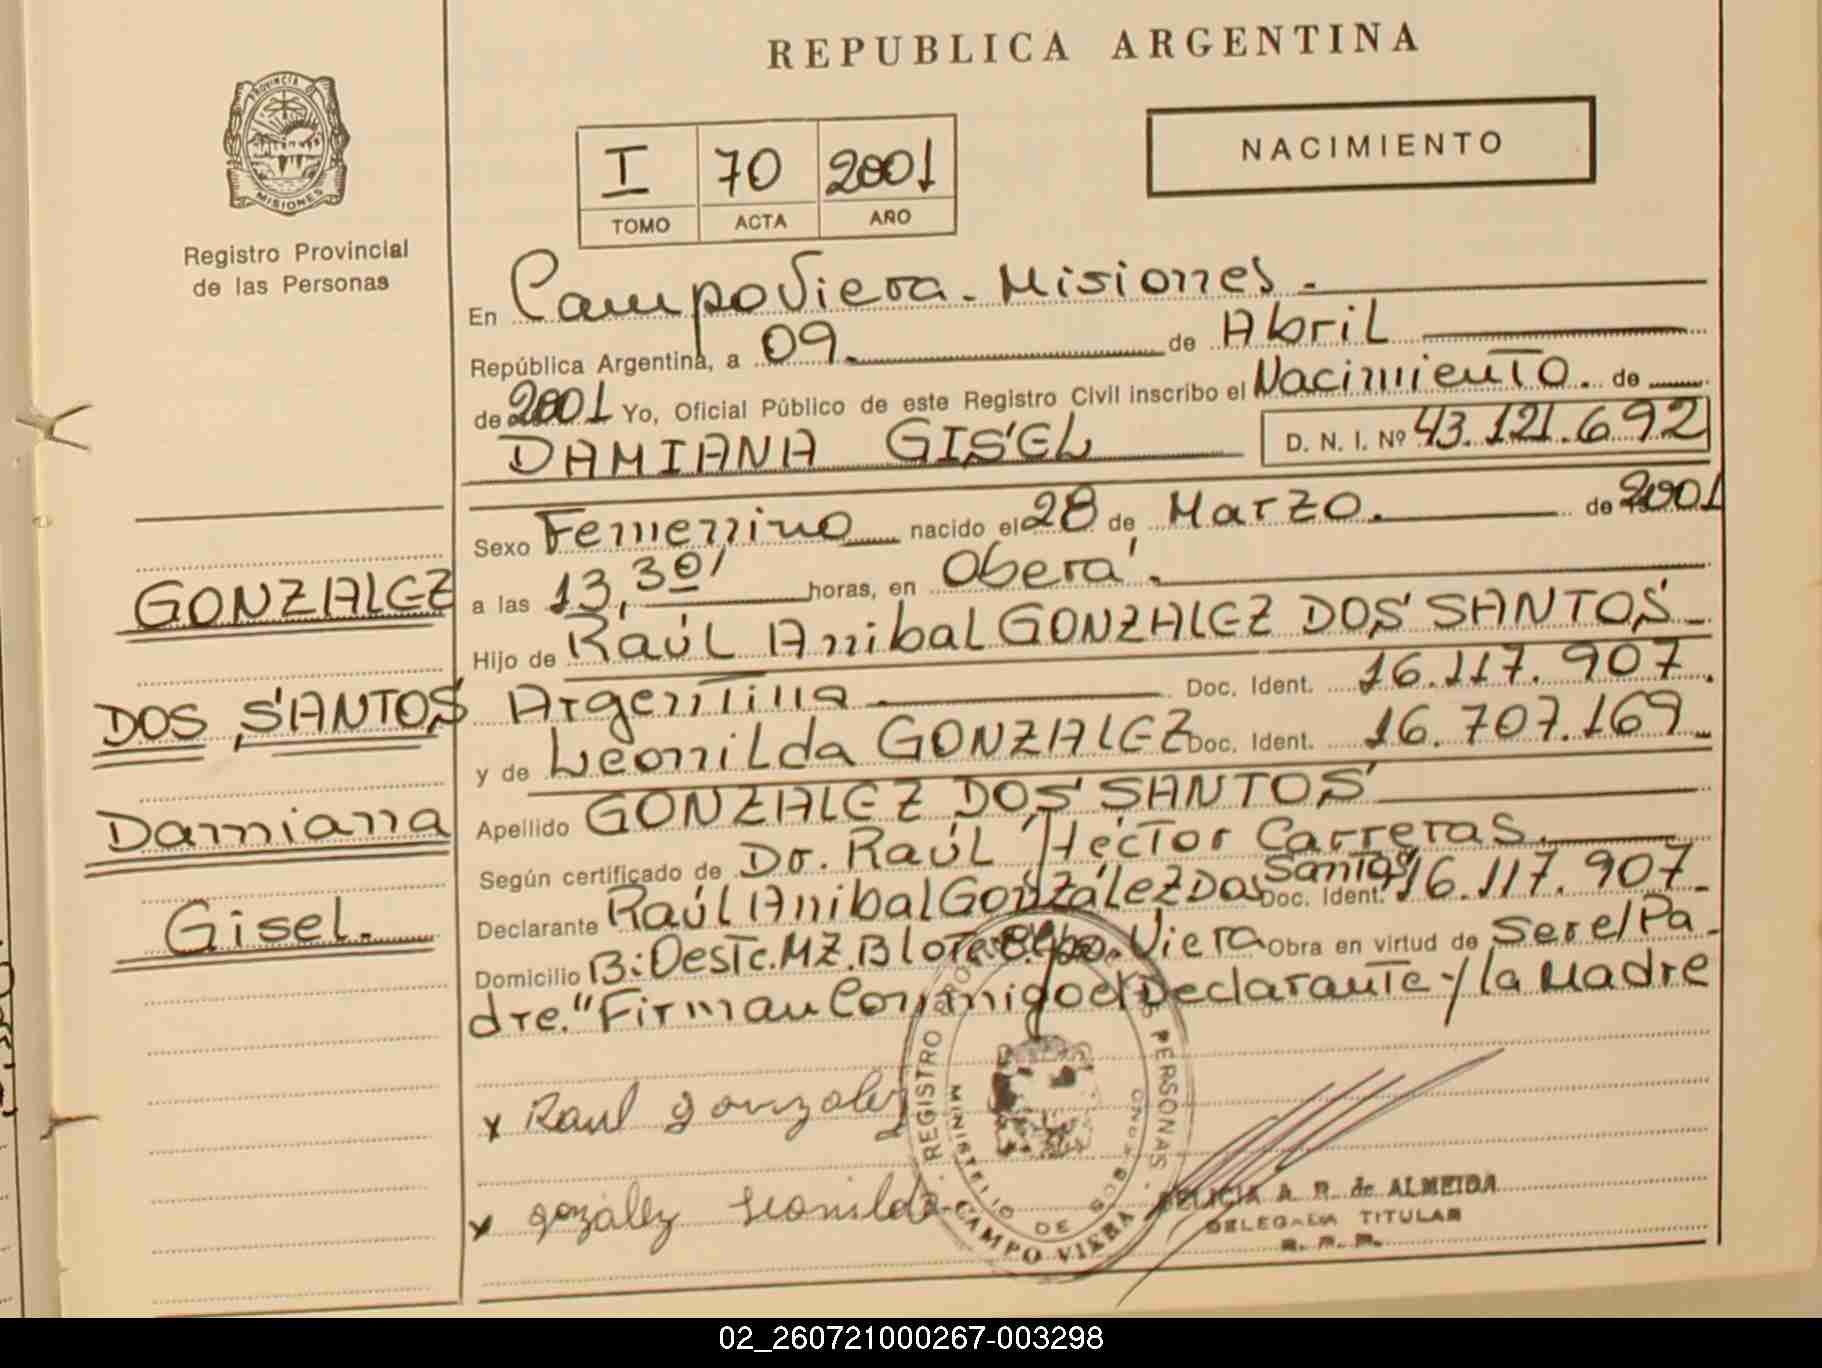 REPUBLICA ARGENTINA
NACIMIENTO
I 70 2001
TOMO ACTA AÑO
PROVINCIA DE
MISIONES
Registro Provincial
de las Personas
En Campo Viera - Misiones.
República Argentina, a 09. de Abril
de 2001 Yo, Oficial Público de este Registro Civil inscribo el Nacimiento. de
DAMIANA GISEL D. N. I. Nº 43.121.692
Sexo Femenino nacido el 28 de Marzo. de 2001
a las 13,30' horas, en Oberá.
Hijo de Raúl Anibal GONZALEZ DOS SANTOS-
Argentina Doc. Ident. 16.117.907.
y de Leonilda GONZALEZ Doc. Ident. 16.707.169
Apellido GONZALEZ DOS SANTOS
Según certificado de Dr. Raúl Héctor Carreras.
Declarante Raúl Anibal González Dos Santos Doc. Ident. 16.117.907-
Domicilio B: Oeste. MZ. B Lote Viera Obra en virtud de Ser el Pa-
dre." Firman Conmigo el Declarante y la Madre
GONZALEZ
DOS SANTOS
Damiana
Gisel.
x Raul gonzalez
x gonzález Leonilda
REGISTRO PERSONAS
MINISTERIO DE GOB
CAMPO VIERA
DELICIA A. R. de ALMEIDA
DELEGADA TITULAR
R. P. P.
02_260721000267-003298